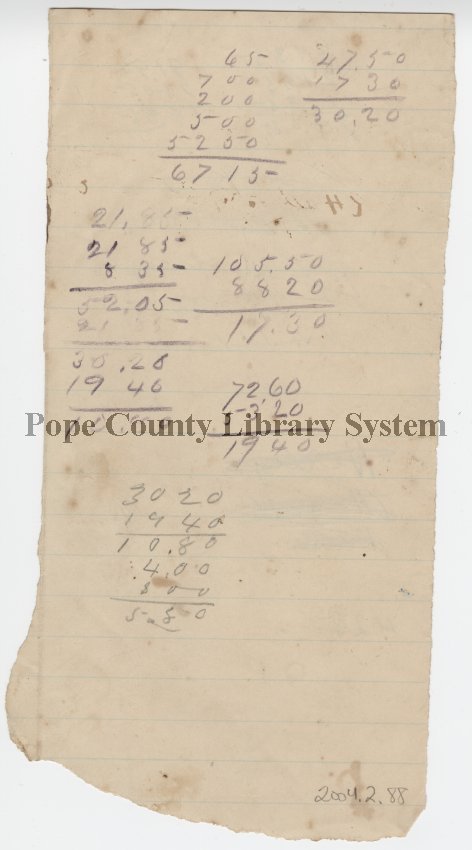 65
700
200
500
5250
6715
47.50
17 30
30.20
21.85
21 85
8 35
52.05
21
30.20
19 40
105.50
88 20
17.30
72.60
53.20
19 40
Pope County Library System
30 20
19 40
10.80
4.00
5.80
2004.2.88